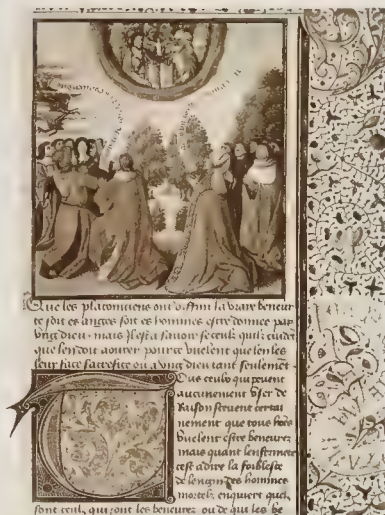 Que les platoniciens ont diffini la vraye beneur
te soit es anges soit es hommes estre donnee par
ung dieu. mais il est a savoir se ceulx quilz cuident
que len doit aourer pource vuelent que len les
leur face sacrefice ou a ung dieu tant seulemet
Ous ceulx qui peuent
aucunement user de
Raison sceuent certai
nement que tous hões
vuelent estre beneurez
mais quant lenfermete
cest a dire la foiblesse
de lengin des hommes
mortelz enquiert quelz
sont ceulx qui sont les beneurez ou de qui les be